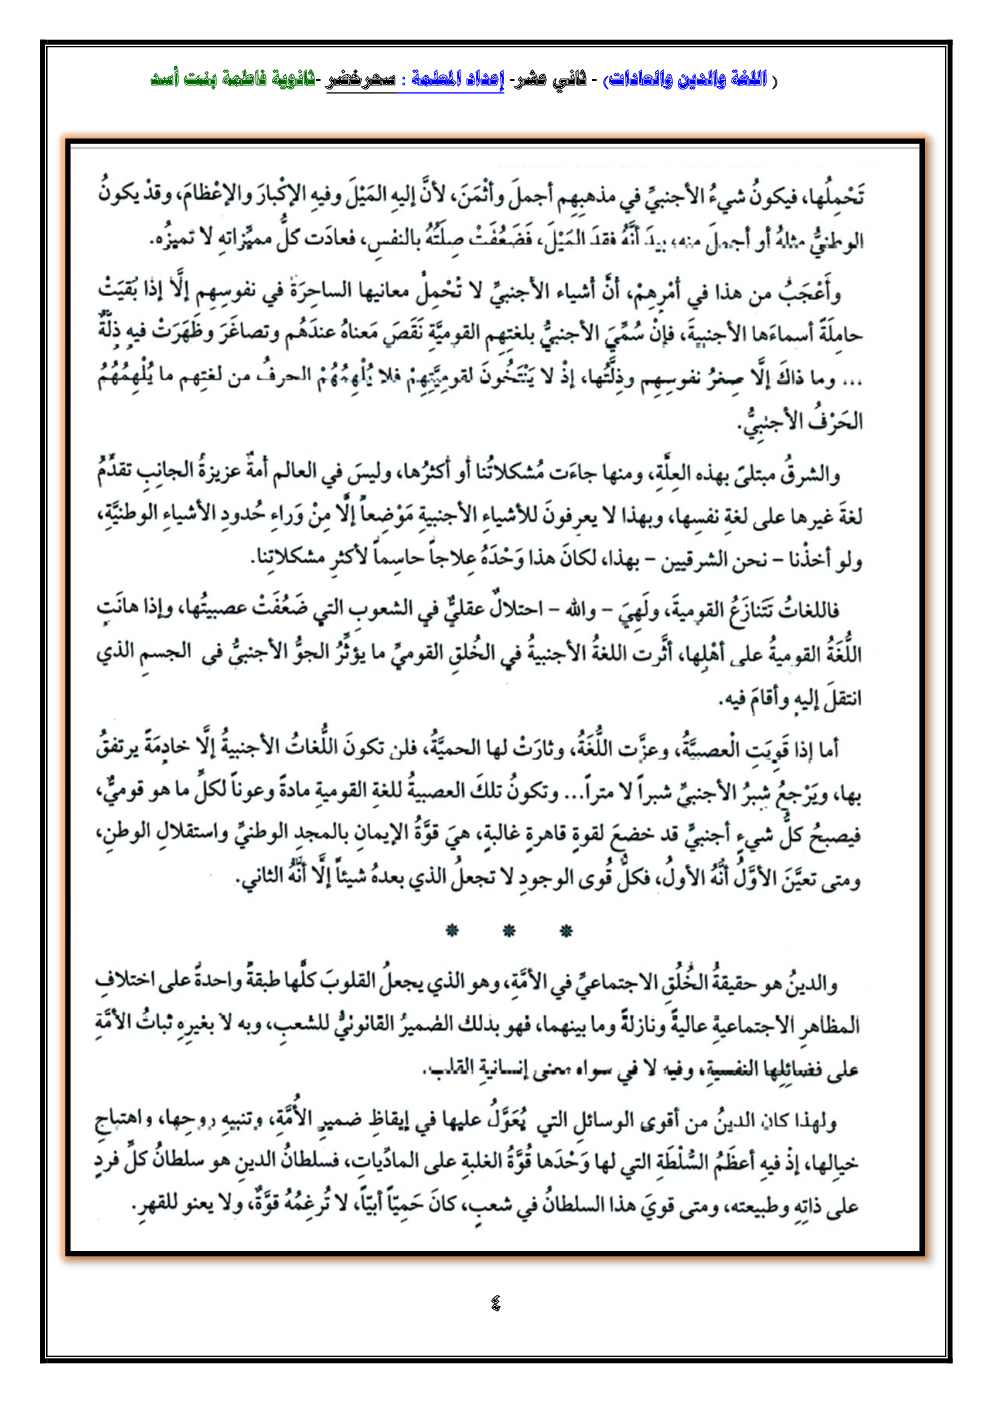 ( اللغة والدين والعادات) - ثاني عشر- إعداد المعلمة : سحرخضر -ثانوية فاطمة بنت أسد
تَحْمِلُها، فيكونُ شيءُ الأجنبيِّ في مذهبِهِم أجملَ وأثْمَنَ، لأنَّ إليهِ المَيْلَ وفيهِ الإكْبارَ والإعْظامَ، وقدْ يكونُ
الوطنيُّ مثلهُ أو أجملَ منه، بيدَ أنَّهُ فقدَ المَيْلَ، فَضَعُفَتْ صِلَتُهُ بالنفسِ، فعادَت كلُّ مميِّزاتهِ لا تميزُه.
وأَعْجَبُ من هذا في أمْرِهِمْ، أنَّ أشياء الأجنبيِّ لا تُحْمِلُ معانيها الساحِرَةَ في نفوسِهِم إلَّا إذا بُقيَتْ
حامِلَةً أسماءَها الأجنبيةَ، فإنْ سُمِّيَ الأجنبيُّ بلغتِهِم القوميَّةِ نَقَصَ مَعناهُ عندَهُم وتصاغَرَ وظَهَرَتْ فيهِ ذِلَّةٌ
... وما ذاكَ إلَّا صِغرُ نفوسِهِم وذِلَّتُها، إذْ لا يَنْتَخُونَ لقوميَّتِهِمْ فلا يُلْهِمُهُمْ الحرفُ من لغتِهم ما يُلْهِمُهُمُ
الحَرْفُ الأجنبيُّ.
والشرقُ مبتلىً بهذه العِلَّةِ، ومنها جاءَت مُشكلاتُنا أو أكثرُها، وليسَ في العالم أمةٌ عزيزةُ الجانبِ تقدِّمُ
لغةَ غيرها على لغةِ نفسِها، وبهذا لا يعرفونَ للأشياءِ الأجنبيةِ مَوْضِعاً إلَّا مِنْ وَراءِ حُدودِ الأشياءِ الوطنيَّةِ،
ولو أخذْنا – نحن الشرقيين – بهذا، لكانَ هذا وَحْدَهُ علاجاً حاسِماً لأكثرِ مشكلاتِنا.
فاللغاتُ تَتَنازَعُ القوميةَ، ولَهِيَ – والله – احتلالٌ عقليٌّ في الشعوبِ التي ضَعُفَتْ عصبيتُها، وإذا هانَتِ
اللُّغَةُ القوميةُ على أهْلِها، أثَّرت اللغةُ الأجنبيةُ في الخُلقِ القوميِّ ما يؤثِّرُ الجوُّ الأجنبيُّ في الجسمِ الذي
انتقلَ إليهِ وأقامَ فيه.
أما إذا قَوِيَتِ الْعصبيَّةُ، وعزَّت اللُّغَةُ، وثارَتْ لها الحميَّةُ، فلن تكونَ اللُّغاتُ الأجنبيةُ إلَّا خادِمَةً يرتفقُ
بها، ويَرْجعُ شِبرُ الأجنبيِّ شبراً لا متراً... وتكونُ تلكَ العصبيةُ للغةِ القوميةِ مادةً وعوناً لكلِّ ما هو قوميٌّ،
فيصبحُ كلُّ شيءٍ أجنبيٍّ قد خضعَ لقوةٍ قاهرةٍ غالبةٍ، هيَ قوَّةُ الإيمانِ بالمجدِ الوطنيِّ واستقلالِ الوطنِ،
ومتى تعيَّنَ الأوَّلُ أنَّهُ الأولُ، فكلُّ قُوى الوجودِ لا تجعلُ الذي بعدهُ شيئاً إلَّا أنَّهُ الثاني.
* * *
والدينُ هو حقيقةُ الخُلُقِ الاجتماعيِّ في الأمَّةِ، وهو الذي يجعلُ القلوبَ كلَّها طبقةً واحدةً على اختلافِ
المظاهرِ الاجتماعيةِ عاليةً ونازلةً وما بينهما، فهو بذلك الضميرُ القانونيُّ للشعبِ، وبه لا بغيرِهِ ثباتُ الأمَّةِ
على فضائلِها النفسيةِ، وفيه لا في سواه معنى إنسانيةِ القلبِ.
ولهذا كان الدينُ من أقوى الوسائلِ التي يُعَوَّلُ عليها في إيقاظِ ضميرِ الأُمَّةِ، وتنبيهِ روحِها، واهتياجِ
خيالِها، إذْ فيهِ أعظَمُ السُّلْطَةِ التي لها وَحْدَها قُوَّةُ الغلبةِ على المادِّياتِ، فسلطانُ الدينِ هو سلطانُ كلِّ فردٍ
على ذاتِهِ وطبيعته، ومتى قويَ هذا السلطانُ في شعبٍ، كانَ حَمِيّاً أبيّاً، لا تُرغِمُهُ قوَّةٌ، ولا يعنو للقهرِ.
٤